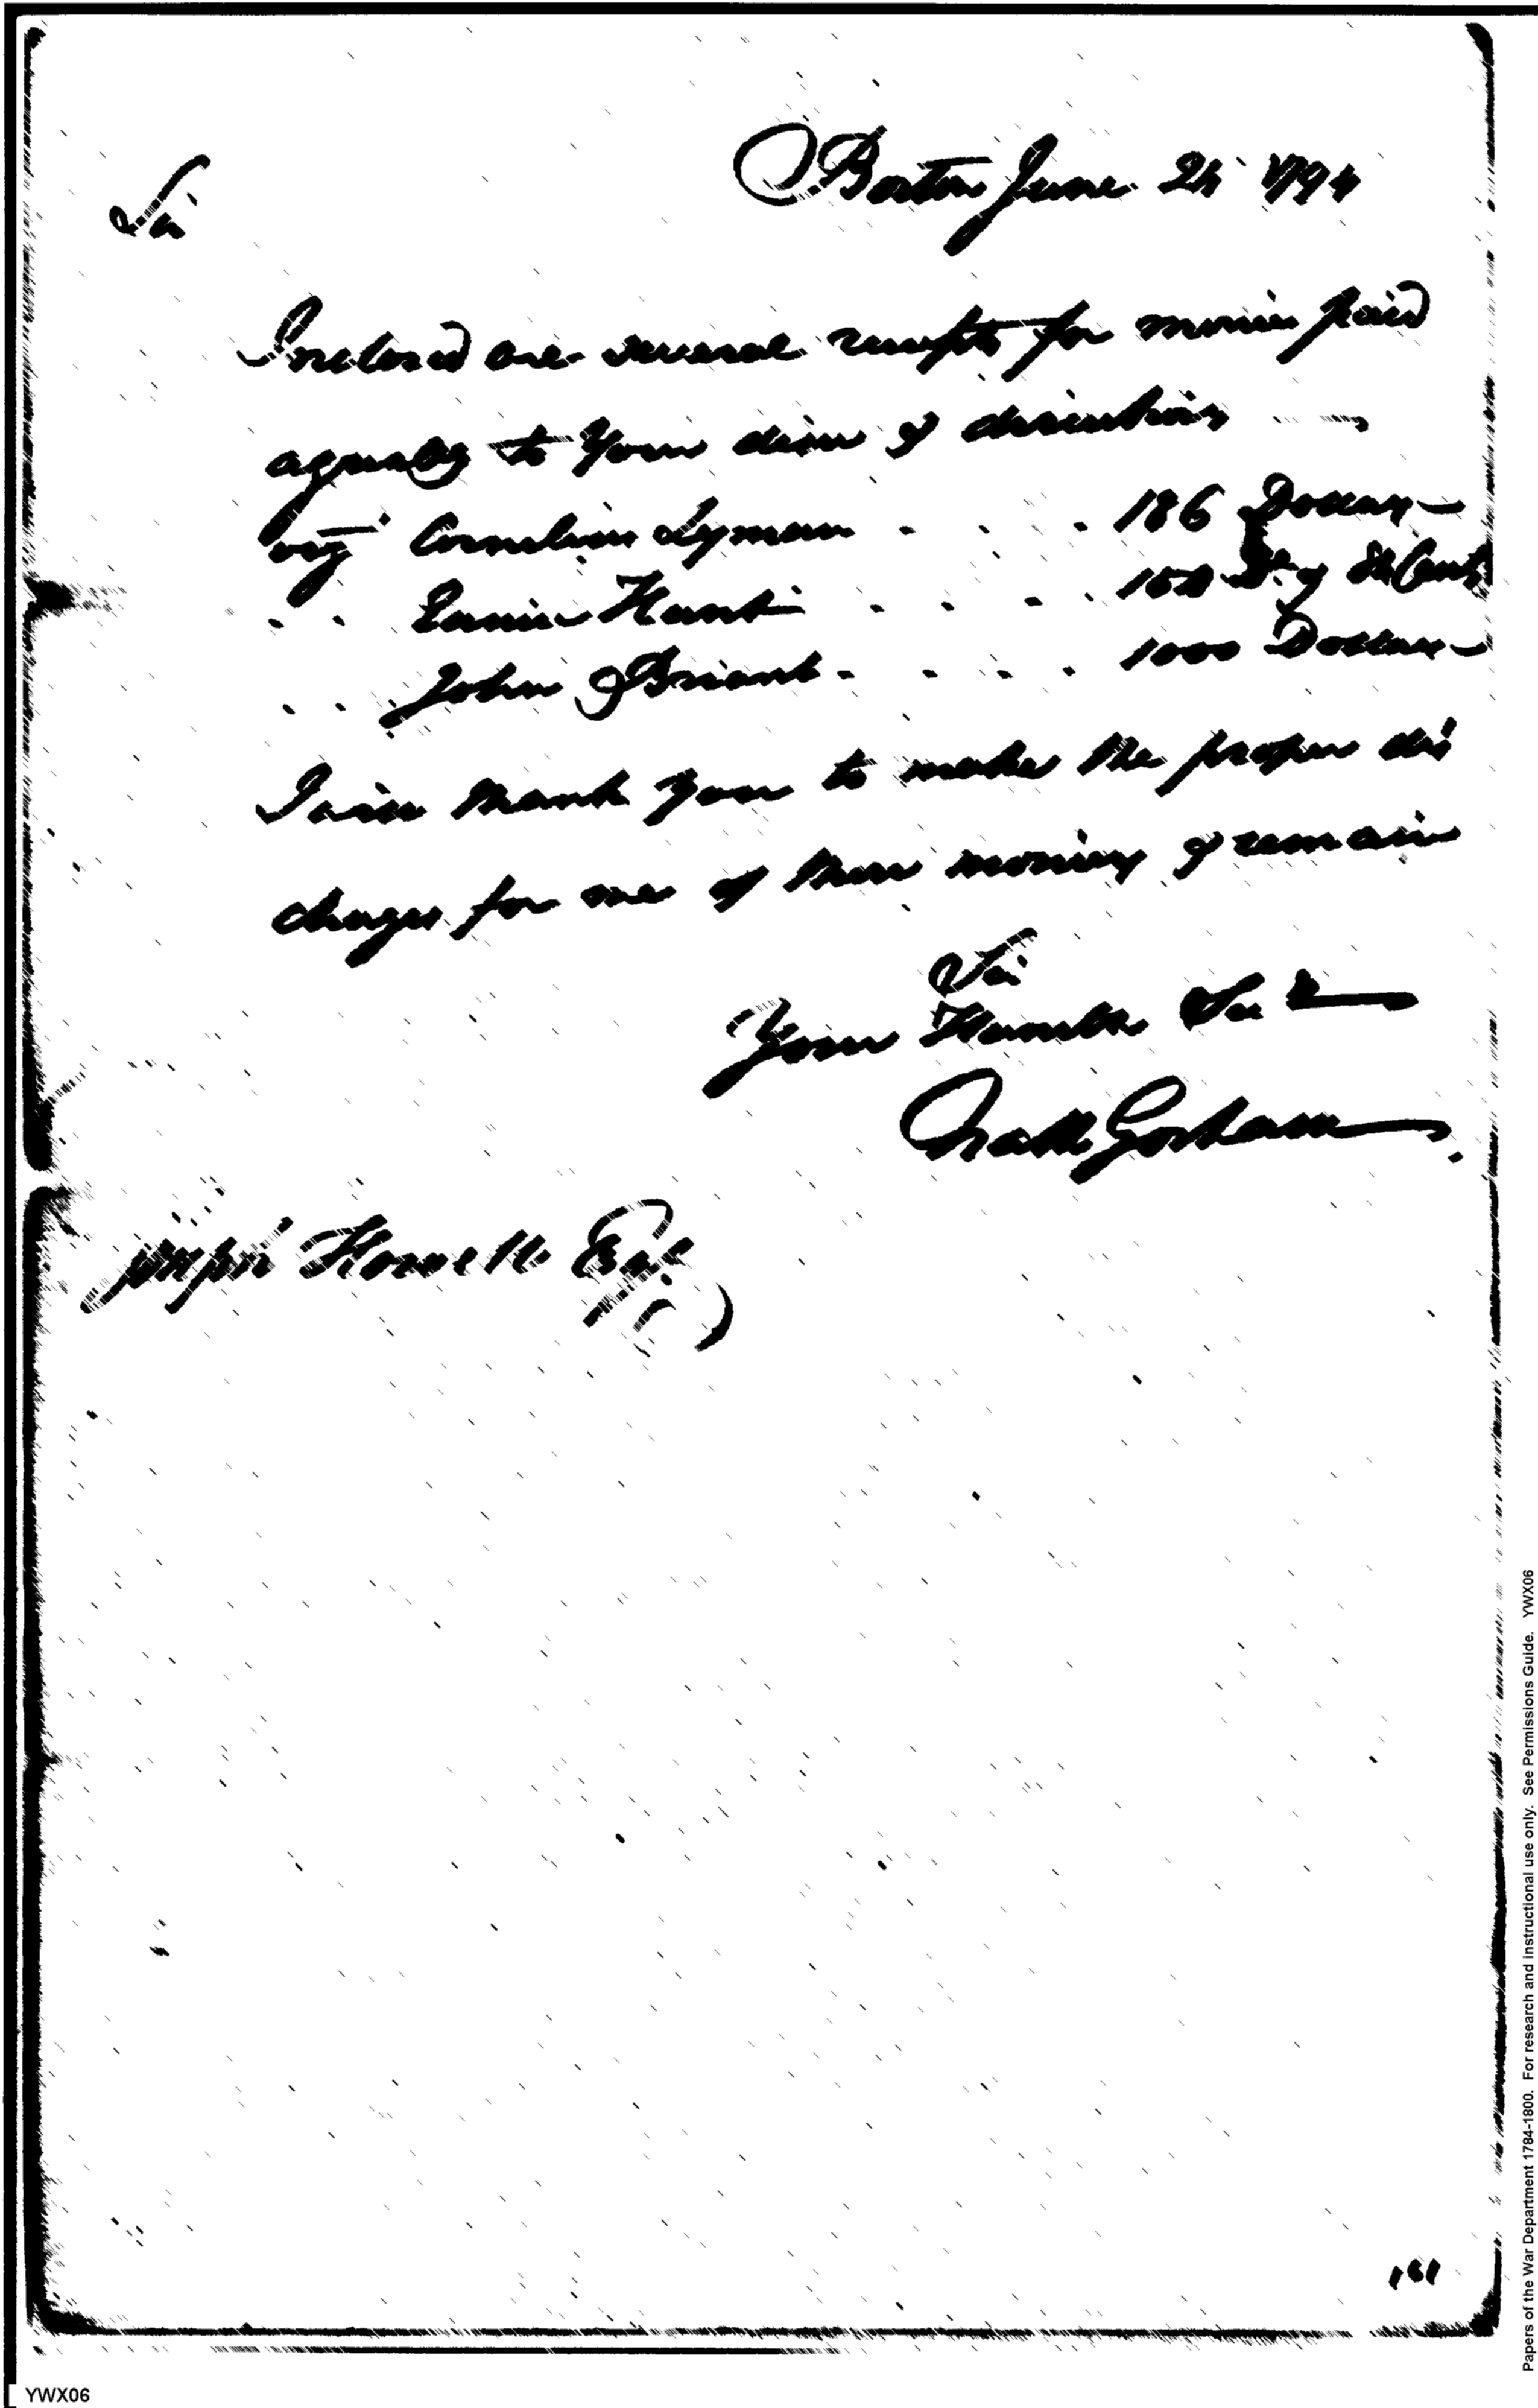 Boston June 24 1794
Sir
Inclosed are several receipts for monies paid
agreably to Your desire & directions
viz Cornelius Lyman . . . 186 Dollars
. . Hunt . . . . Do. & Cents
. . John Briant . . . . 1000 Dollars
I will thank you to make the proper dis
charges for me of these monies & remain
Sir
Your Humble Ser
Nath Gorham
Joseph Howell Esq.
161
YWX06
Papers of the War Department 1784-1800. For research and instructional use only. See Permissions Guide. YWX06